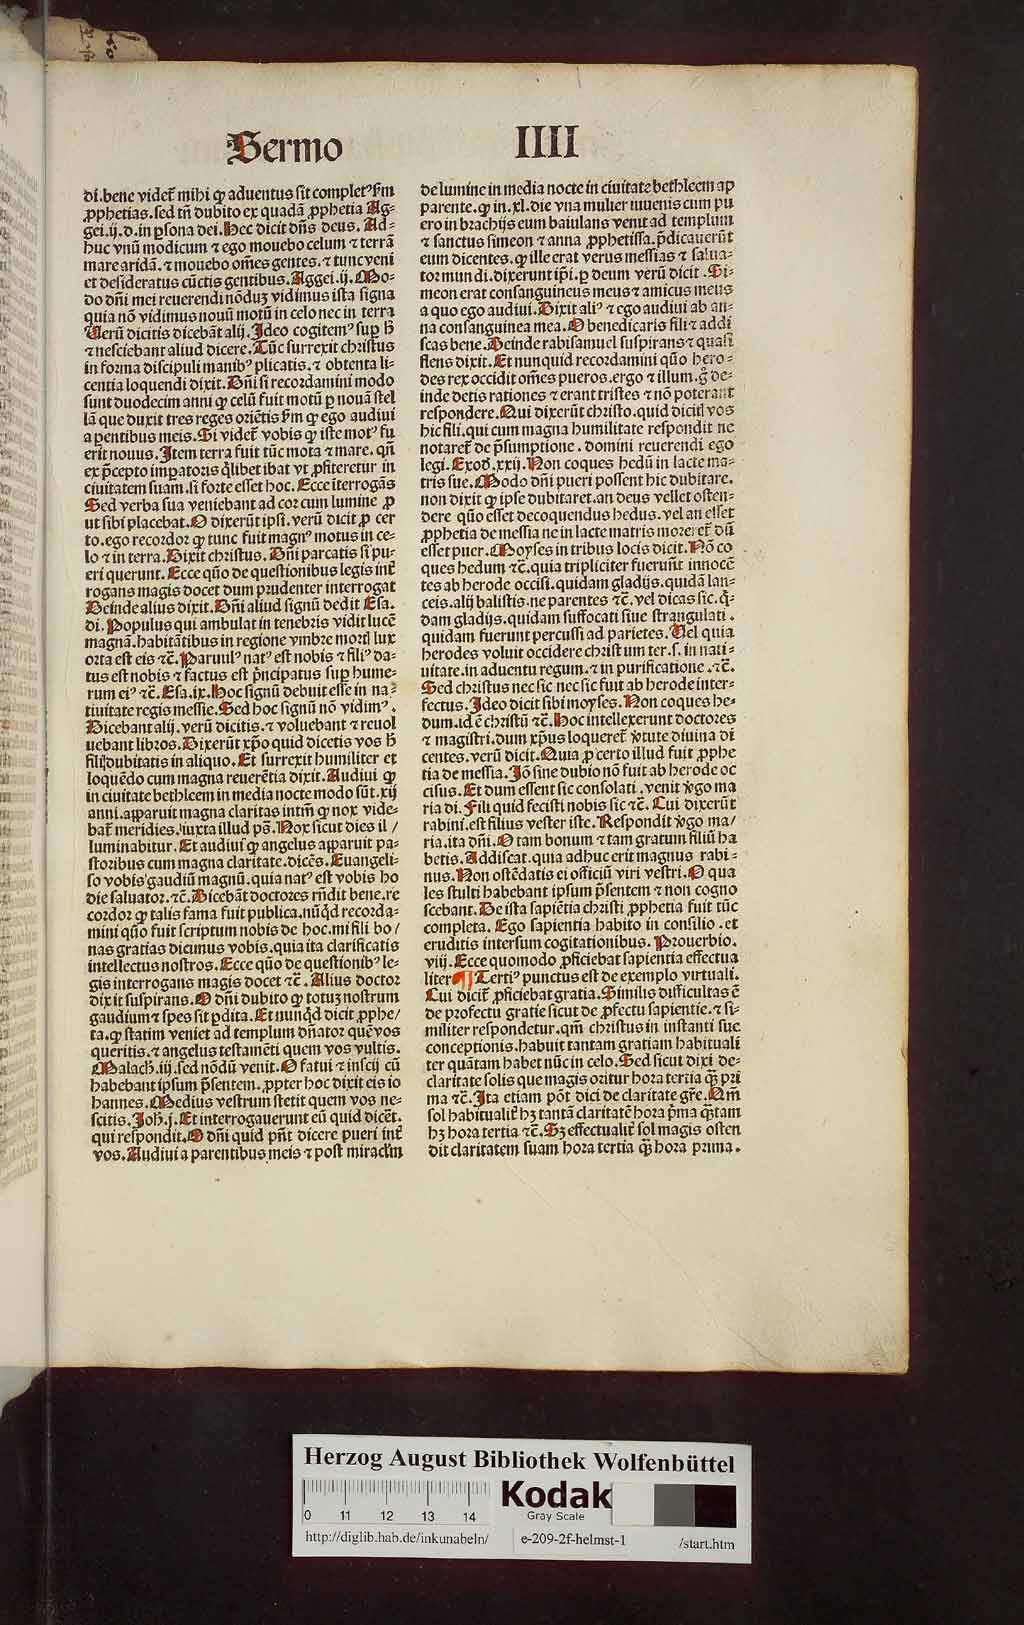 Sermo IIII
di. bene videt̃ mihi ꝙ aduentus sit completꝰ ẜm
ꝓphetias. sed tñ dubito ex quadã ꝓphetia Ag-
gei. ij. d. in ꝑsona dei. Hec dicit dñs deus. Ad-
huc vnũ modicum ⁊ ego mouebo celum ⁊ terrã
mare aridã. ⁊ mouebo om̃es gentes. ⁊ tunc veni
et desideratus cũctis gentibus. Aggei. ij. Mo-
do dñi mei reuerendi nõduꝫ vidimus ista signa
quia nõ vidimus nouũ motũ in celo nec in terra
Uerũ dicitis dicebãt alij. Ideo cogitemꝰ suꝑ h̃
⁊ nesciebant aliud dicere. Tũc surrexit christus
in forma discipuli manibꝰ plicatis. ⁊ obtenta li-
centia loquendi dixit. Dñi si recordamini modo
sunt duodecim anni ꝙ celũ fuit motũ ꝑ nouã stel
lã que duxit tres reges oriẽtis ẜm ꝙ ego audiui
a ꝑentibus meis. Si videt̃ vobis ꝙ iste motꝰ fu
erit nouus. Item terra fuit tũc mota ⁊ mare. qñ
ex p̃cepto imꝑatoris q̃libet ibat vt ꝓfiteretur in
ciuitatem suam. si forte esset hoc. Ecce ĩterrogãs
Sed verba sua veniebant ad cor cum lumine ꝓ
ut sibi placebat. O dixerũt ipsi. verũ dicit ꝓ cer
to. ego recordor ꝙ tunc fuit magnꝰ motus in ce-
lo ⁊ in terra. Dixit christus. Dñi parcatis si pu-
eri querunt. Ecce quõ de questionibus legis int̃
rogans magis docet dum prudenter interrogat
Deinde alius dixit. Dñi aliud signũ dedit Esa.
di. Populus qui ambulat in tenebris vidit lucẽ
magnã. habitãtibus in regione vmbre mortꝭ lux
orta est eis ⁊c̃. Paruulꝰ natꝰ est nobis ⁊ filiꝰ da-
tus est nobis ⁊ factus est p̃ncipatus suꝑ hume-
rum eiꝰ ⁊c̃. Esa. ix. Hoc signũ debuit esse in na-
tiuitate regis messie. Sed hoc signũ nõ vidimꝰ.
Dicebant alij. verũ dicitis. ⁊ voluebant ⁊ reuol
uebant libros. Dixerũt xp̃o quid dicetis vos h̃
fili dubitatis in aliquo. Et surrexit humiliter et
loquẽdo cum magna reuerẽtia dixit. Audiui ꝙ
in ciuitate bethleem in media nocte modo sũt. xij
anni. apparuit magna claritas intm̃ ꝙ nox vide-
bat̃ meridies. iuxta illud pš. Nox sicut dies il/
luminabitur. Et audiui ꝙ angelus apparuit pa-
storibus cum magna claritate. dicẽs. Euangeli-
so vobis gaudiũ magnũ. quia natꝰ est vobis ho
die saluator. ⁊c̃. Dicebãt doctores rñdit bene. re
cordor ꝙ talis fama fuit publica. nũq̃d recorda-
mini quõ fuit scriptum nobis de hoc. mi fili bo/
nas gratias dicimus vobis. quia ita clarificatis
intellectus nostros. Ecce quõ de questionibꝰ le-
gis interrogans magis docet ⁊c̃. Alius doctor
dixit suspirans. O dñi dubito ꝙ totuꝫ nostrum
gaudium ⁊ spes sit ꝑdita. Et nunq̃d dicit ꝓphe/
ta. ꝙ statim veniet ad templum dñator quẽ vos
queritis. ⁊ angelus testamẽti quem vos vultis.
Malach. iij. sed nõdũ venit. O fatui ⁊ inscij cũ
habebant ipsum p̃sentem. ꝓpter hoc dixit eis io
hannes. Medius vestrum stetit quem vos ne-
scitis. Joh. j. Et interrogauerunt eũ quid dicẽt.
qui respondit. O dñi quid pñt dicere pueri int̃
vos. Audiui a parentibus meis ⁊ post miracl̃m
de lumine in media nocte in ciuitate bethleem ap
parente. ꝙ in. xl. die vna mulier iuuenis cum pu
ero in brachijs eum baiulans venit ad templum
⁊ sanctus simeon ⁊ anna ꝓphetissa. p̃dicauerũt
eum dicentes. ꝙ ille erat verus messias ⁊ salua-
tor mundi. dixerunt ip̃i. ꝑ deum verũ dicit. Si-
meon erat consanguineus meus ⁊ amicus meus
a quo ego audiui. Dixit aliꝰ ⁊ ego audiui ab an-
na consanguinea mea. O benedicaris fili ⁊ addi
scas bene. Deinde rabi samuel suspirans ⁊ quasi
flens dixit. Et nunquid recordamini quõ hero-
des rex occidit om̃es pueros. ergo ⁊ illum. g̃ de-
inde detis rationes ⁊ erant tristes ⁊ nõ poterant
respondere. Qui dixerũt christo. quid dicitꝭ vos
hic fili. qui cum magna humilitate respondit ne
notaret̃ de p̃sumptione. domini reuerendi ego
legi. Exod. xxij. Non coques hedũ in lacte ma-
tris sue. Modo dñi pueri possent hic dubitare.
non dixit ꝙ ipse dubitaret. an deus vellet osten-
dere quõ esset decoquendus hedus. vel an esset
ꝓphetia de messia ne in lacte matris moreret̃ dũ
esset puer. Moyses in tribus locis dicit. Nõ co
ques hedum ⁊c̃. quia tripliciter fuerunt innocẽ
tes ab herode occisi. quidam gladijs. quidã lan-
ceis. alij balistis. ne parentes ⁊c̃. vel dicas sic. q̃-
dam gladijs. quidam suffocati siue strangulati.
quidam fuerunt percussi ad parietes. Vel quia
herodes voluit occidere christum ter. s. in nati-
uitate. in aduentu regum. ⁊ in purificatione. ⁊c̃.
Sed christus nec sic nec sic fuit ab herode inter-
fectus. Ideo dicit sibi moyses. Non coques he-
dum. id ẽ christũ ⁊c̃. Hoc intellexerunt doctores
⁊ magistri. dum xp̃us loqueret̃ v̾tute diuina di
centes. verũ dicit. Quia ꝓ certo illud fuit ꝓphe
tia de messia. Iõ sine dubio nõ fuit ab herode oc
cisus. Et dum essent sic consolati. venit v̾go ma
ria di. Fili quid fecisti nobis sic ⁊c̃. Cui dixerũt
rabini. est filius vester iste. Respondit v̾go ma/
ria. ita dñi. O tam bonum ⁊ tam gratum filiũ ha
betis. Addiscat. quia adhuc erit magnus rabi-
nus. Non ostẽdatis ei officiũ viri vestri. O qua
les stulti habebant ipsum p̃sentem ⁊ non cogno
scebant. De ista sapiẽtia christi ꝓphetia fuit tũc
completa. Ego sapientia habito in consilio. et
eruditis intersum cogitationibus. Prouerbio.
viij. Ecce quomodo ꝓficiebat sapientia effectua
liter ¶ Tertiꝰ punctus est de exemplo virtuali.
Cui dicit̃ ꝓficiebat gratia. Similis difficultas ẽ
de profectu gratie sicut de ꝓfectu sapientie. ⁊ si-
militer respondetur. qm̃ christus in instanti sue
conceptionis. habuit tantam gratiam habituali
ter quãtam habet nũc in celo. Sed sicut dixi de-
claritate solis que magis oritur hora tertia q̃ꝫ pri
ma ⁊c̃. Ita etiam põt dici de claritate gr̃e. Qm̃
sol habitualit̃ hꝫ tantã claritatẽ hora p̃ma q̃ꝫtam
hꝫ hora tertia ⁊c̃. Sꝫ effectualit̃ sol magis osten
dit claritatem suam hora tertia q̃ꝫ hora prima.
Herzog August Bibliothek Wolfenbüttel
0 11 12 13 14
Kodak
Gray Scale
http://diglib.hab.de/inkunabeln/ e-209-2f-helmst-1 /start.htm